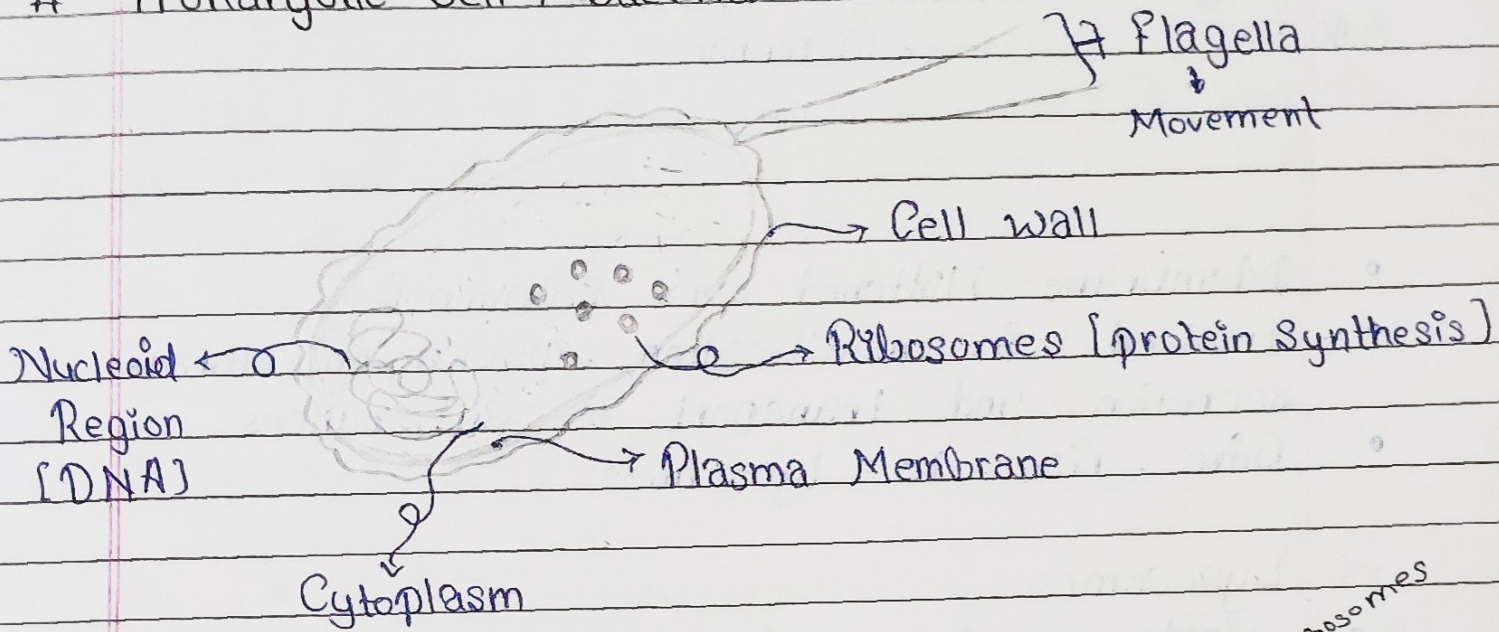 # Prokaryotic Cell
Flagella
Movement
Cell wall
Ribosomes [protein synthesis]
Nucleoid
Region
[DNA]
Plasma Membrane
Cytoplasm